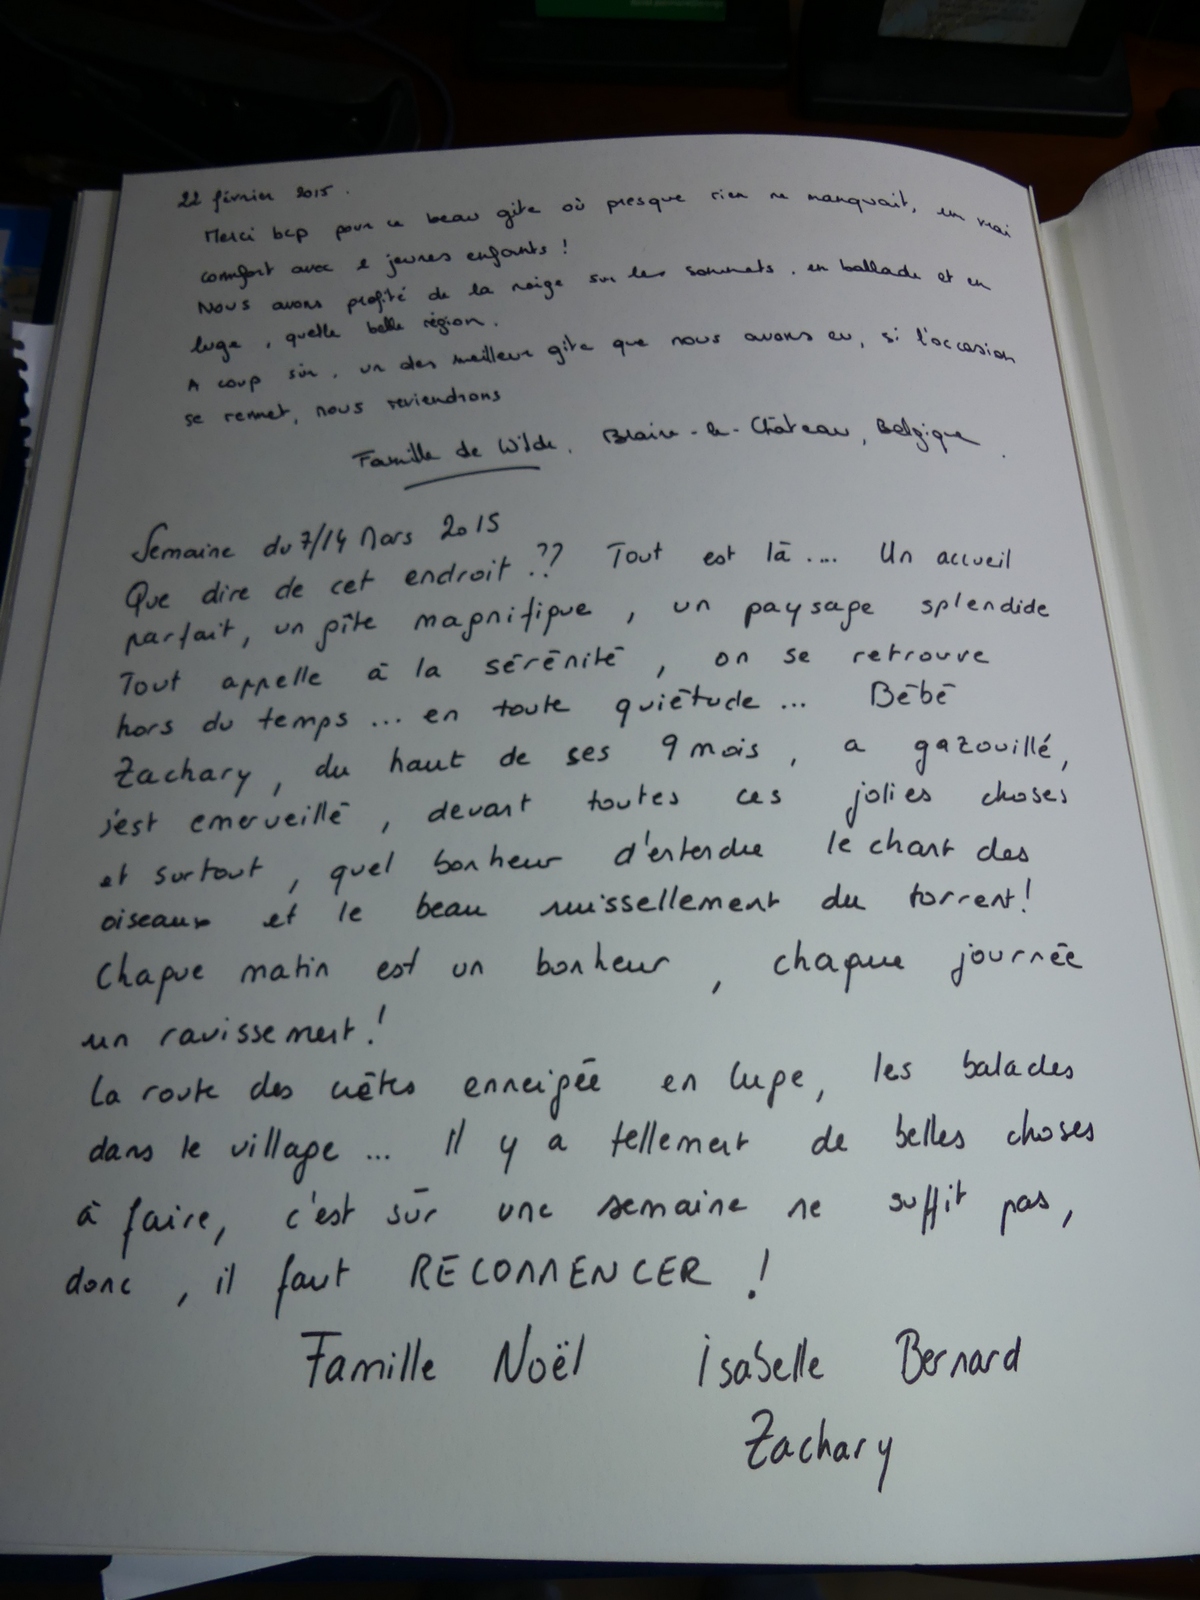 22 février 2015.
Merci bcp pour ce beau gite où presque rien ne manquait, un vrai
comfort avec 2 jeunes enfants !
Nous avons profité de la neige sur les sommets, en ballade et en
luge, quelle belle région.
A coup sûr, un des meilleur gite que nous avons eu, si l'occasion
se remet, nous reviendrons
Famille de Wilde, Braine-le-Château, Belgique.
Semaine du 7/14 Mars 2015
Que dire de cet endroit ?? Tout est là .... Un accueil
parfait, un gîte magnifique, un paysage splendide
Tout appelle à la sérénité, on se retrouve
hors du temps ... en toute quiétude ... Bébé
Zachary, du haut de ses 9 mois, a gazouillé,
s'est emerveillé, devant toutes ces jolies choses
et surtout, quel bonheur d'entendre le chant des
oiseaux et le beau ruissellement du torrent!
Chaque matin est un bonheur, chaque journée
un ravissement!
La route des crêtes enneigée en luge, les balades
dans le village ... Il y a tellement de belles choses
à faire, c'est sûr une semaine ne suffit pas,
donc, il faut RECOMMENCER !
Famille Noël Isabelle Bernard
Zachary